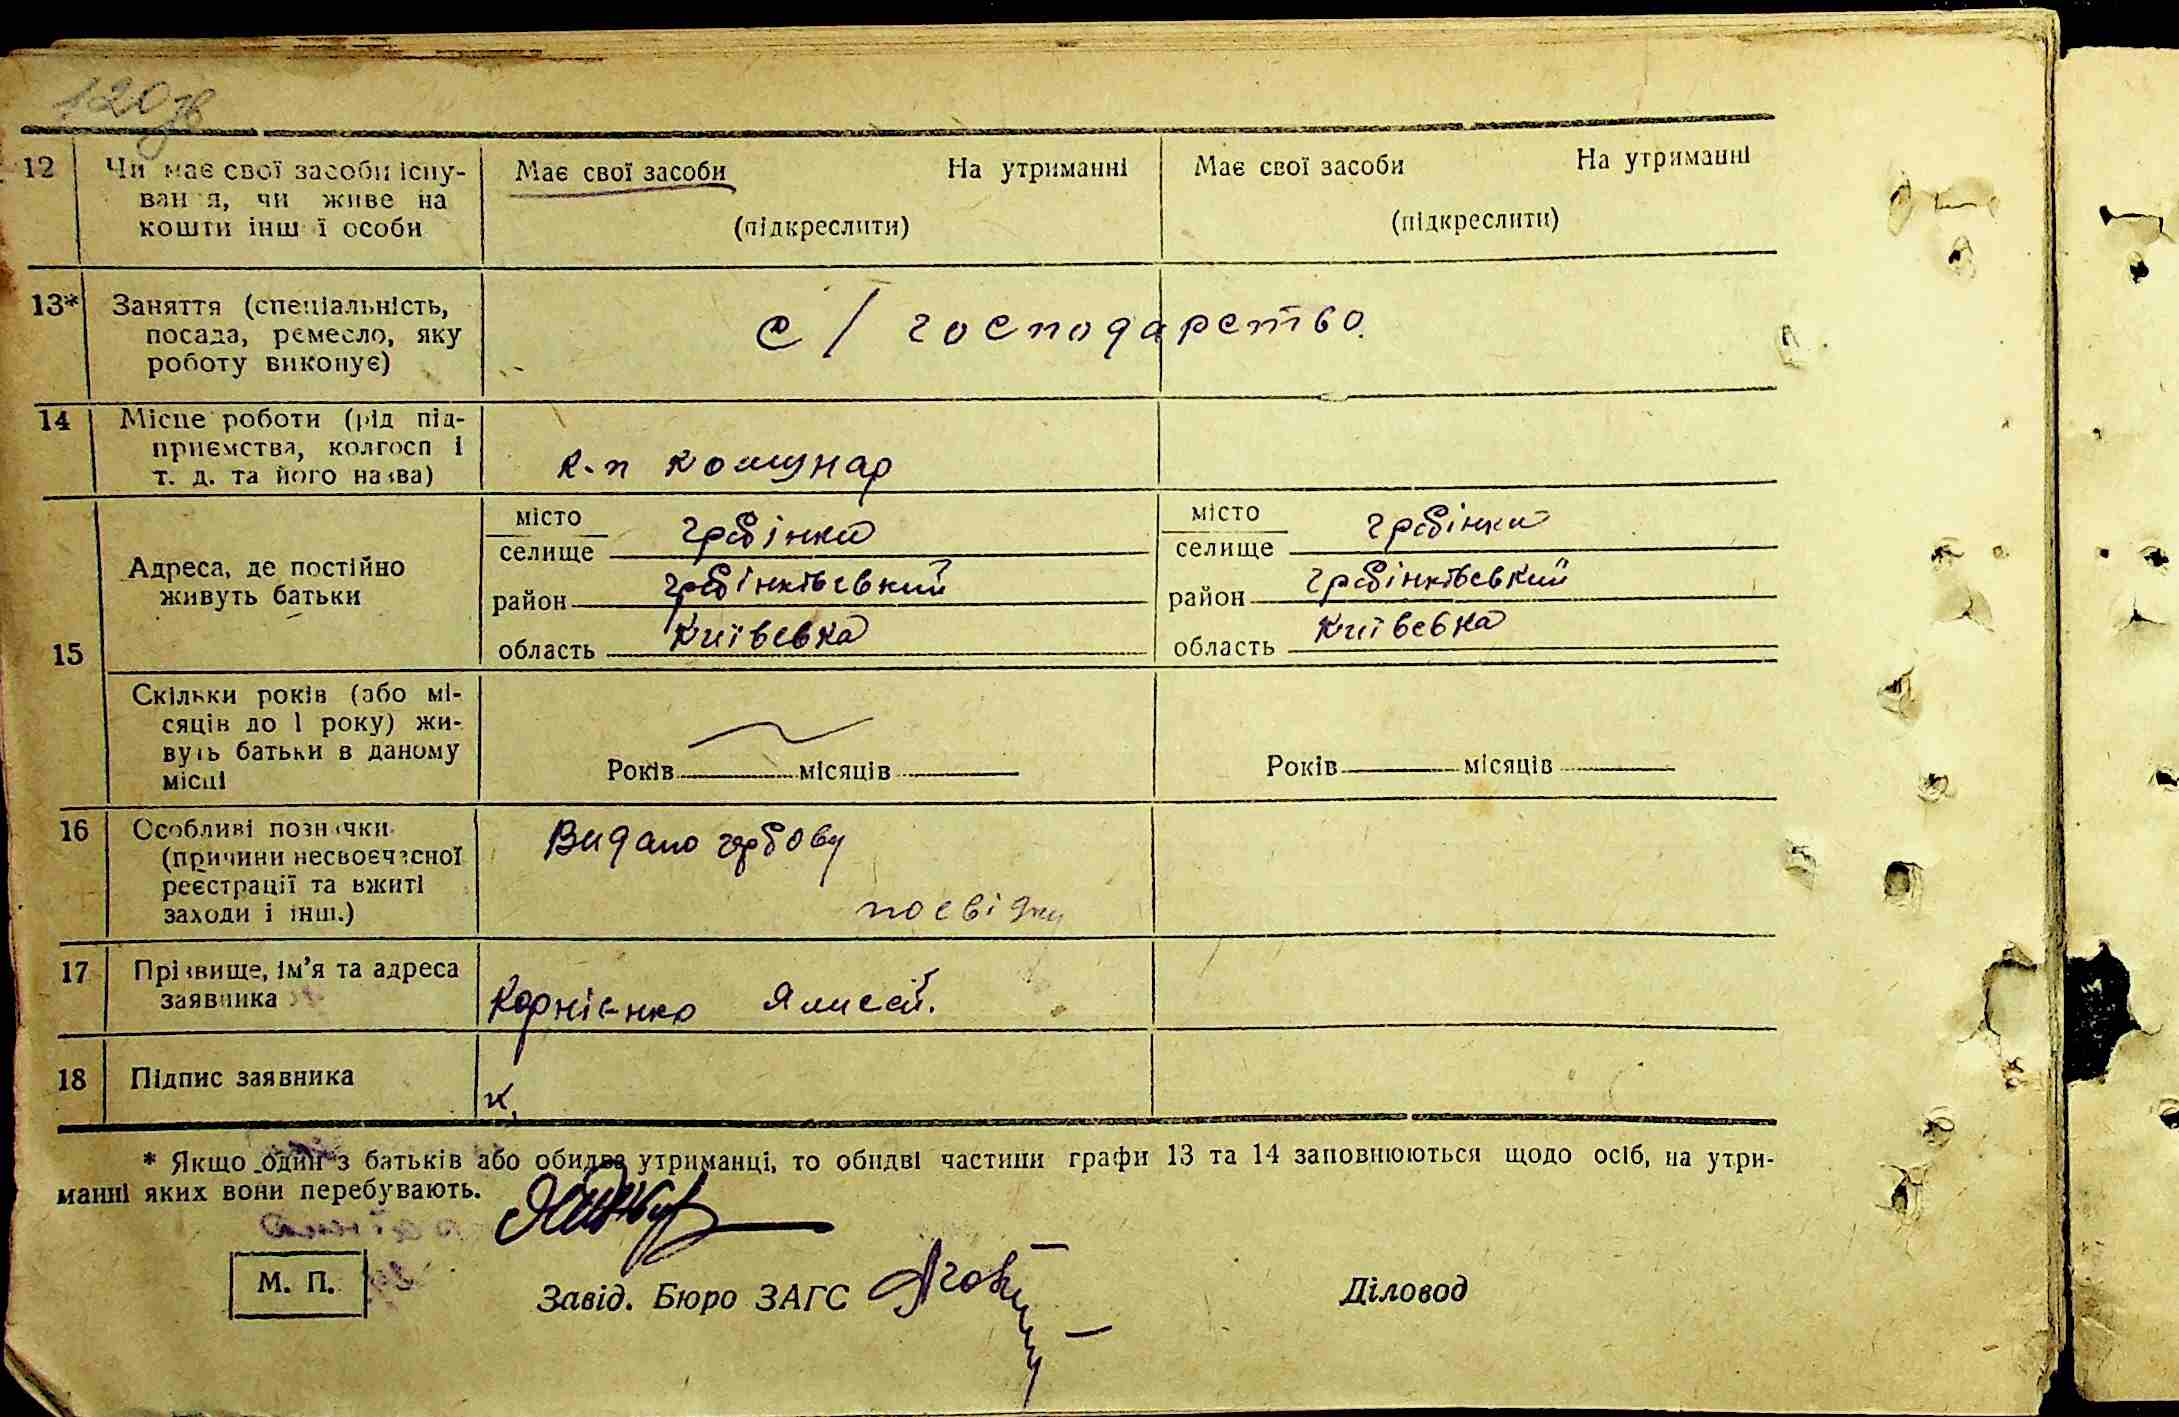 120зв
12 Чи має свої засоби існу- Має свої засоби На утриманні Має свої засоби На утриманні
вання, чи живе на
кошти іншої особи (підкреслити) (підкреслити)
13* Заняття (спеціальність,
посада, ремесло, яку с/господарство.
роботу виконує)
14 Місце роботи (рід під-
приємства, колгосп і к-п комунар
т. д. та його назва)
15 Адреса, де постійно
живуть батьки
місто
селище Гребінки
район Гребінківський
область Київська
місто
селище Гребінки
район Гребінківський
область Київська
Скільки років (або мі-
сяців до 1 року) жи-
вуть батьки в даному
місці
Років місяців Років місяців
16 Особливі позначки
(причини несвоєчасної
реєстрації та вжиті
заходи і інш.)
Видано гербову
посвідку
17 Прізвище, ім'я та адреса
заявника Корнієнко
18 Підпис заявника К.
* Якщо один з батьків або обидва утриманці, то обидві частини графи 13 та 14 заповнюються щодо осіб, на утри-
манні яких вони перебувають.
М. П. Завід. Бюро ЗАГС Діловод